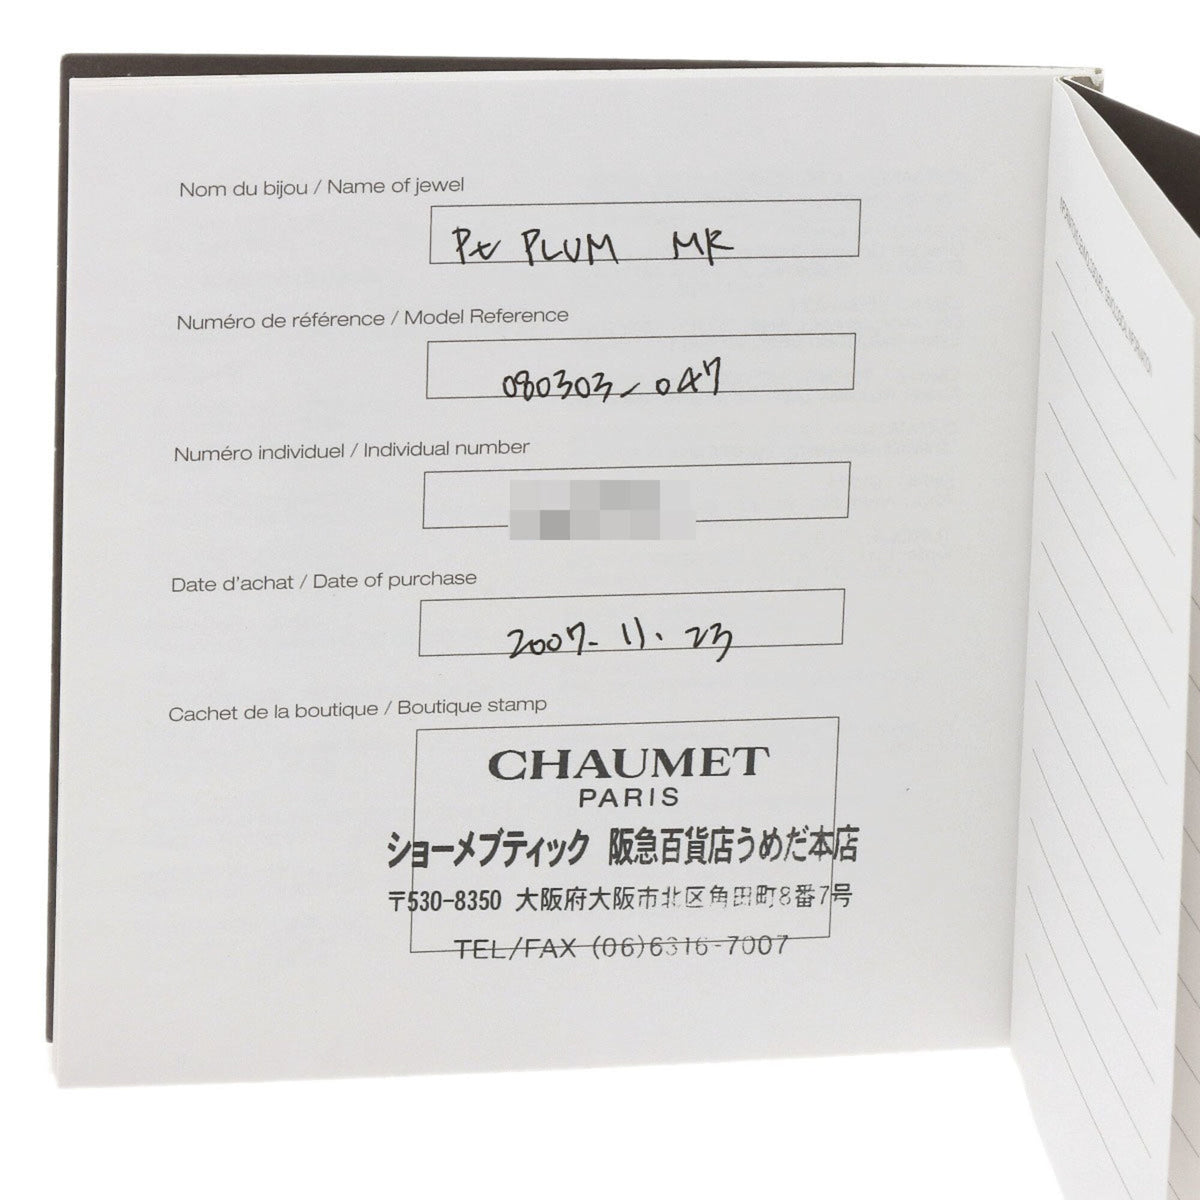 Nom du bijou / Name of jewel
Pt PLUM MR
Numéro de référence / Model Reference
080303-047
Numéro individuel / Individual number
Date d'achat / Date of purchase
2007. 11. 23
Cachet de la boutique / Boutique stamp
CHAUMET
PARIS
ショーメブティック 阪急百貨店うめだ本店
〒530-8350 大阪府大阪市北区角田町8番7号
TEL/FAX (06)6316-7007